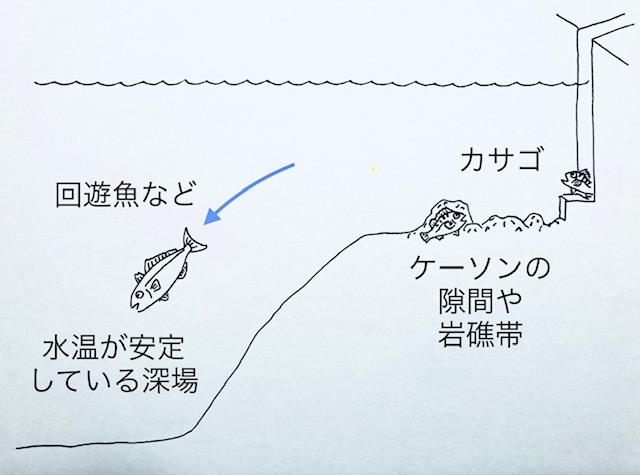 カサゴ
回遊魚など
ケーソンの
隙間や
岩礁帯
水温が安定
している深場